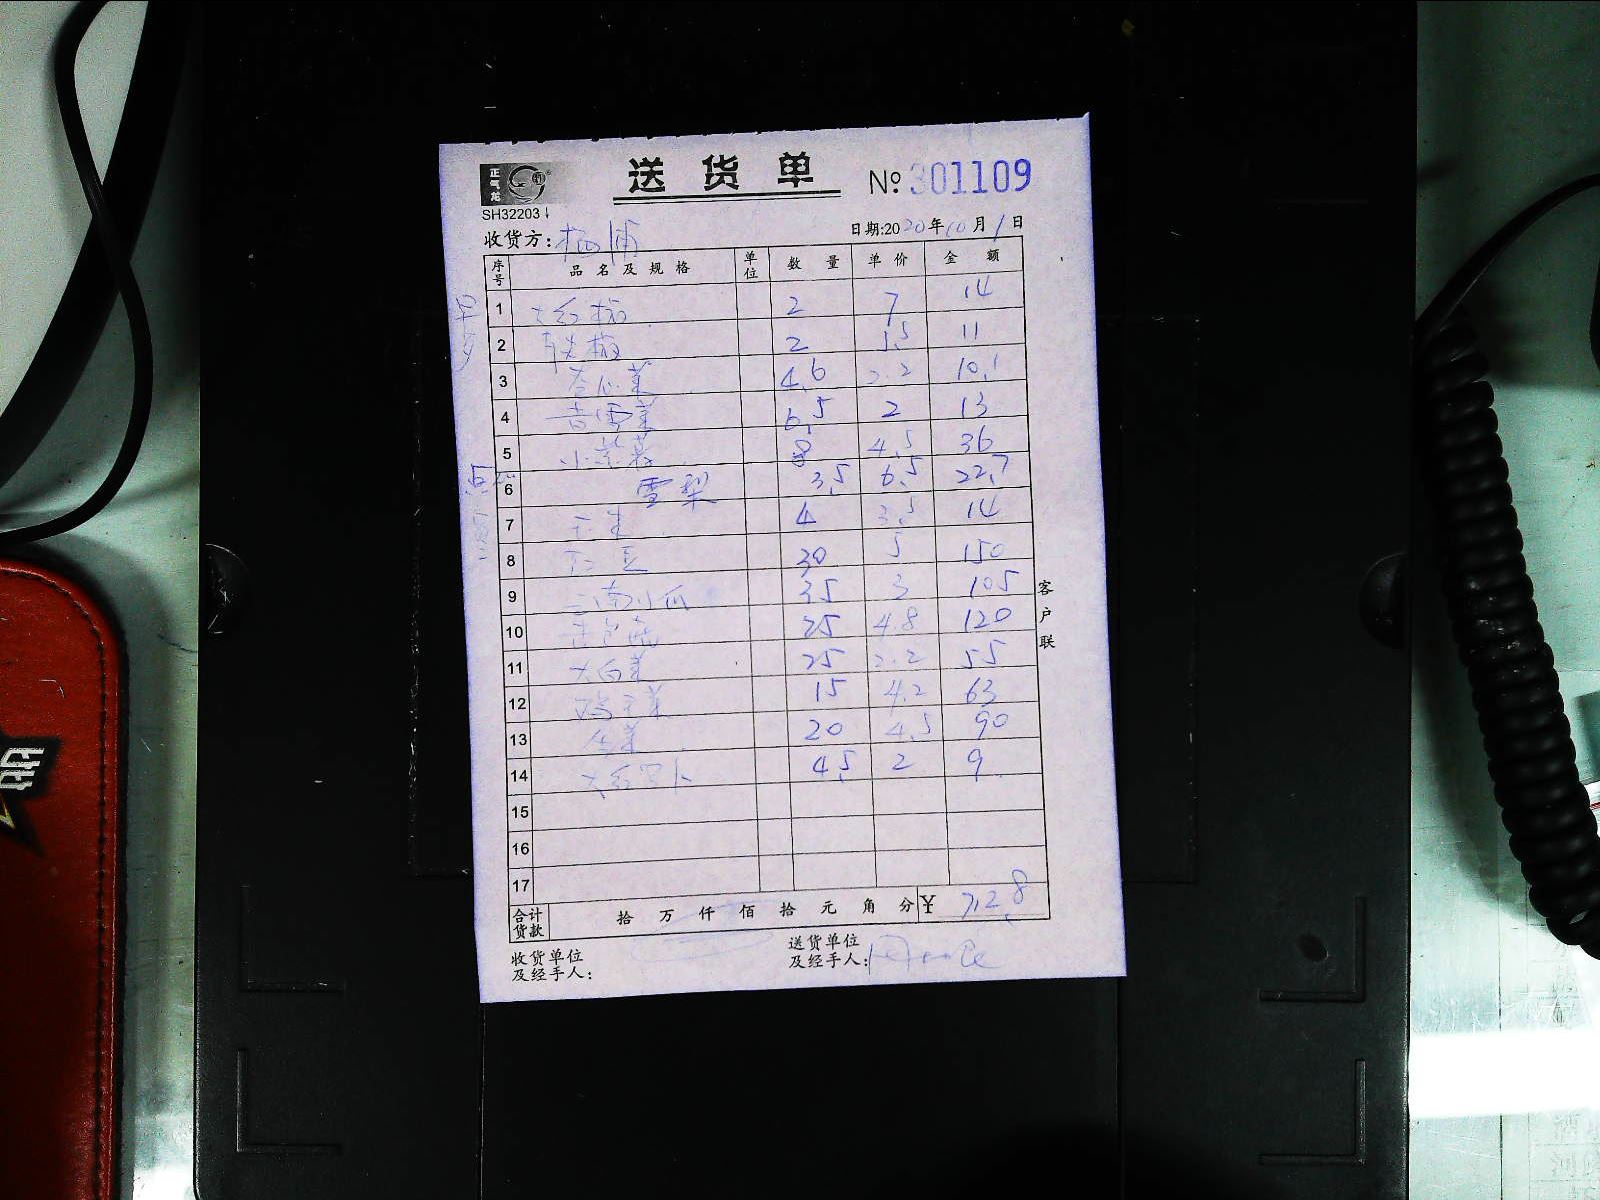 正气龙
送货单 № 301109
SH32203
收货方: 日期:2020年10月1日
序号 品名及规格 单位 数量 单价 金额
1 大红椒 2 7 14
2 2 5.5 11
3 菜 4.6 2.2 10.1
4 菜 6.5 2 13
5 小 8 4.5 36
6 雪梨 3.5 6.5 22.7
7 玉米 4 3.5 14
8 豆 30 5 150
9 云南小瓜 35 3 105
10 25 4.8 120
11 大白菜 25 2.2 55
12 鸡毛菜 15 4.2 63
13 生菜 20 4.5 90
14 大红罗卜 4.5 2 9
15
16
17
客户联
合计货款 拾 万 仟 佰 拾 元 角 分 ¥ 712.8
收货单位及经手人: 送货单位及经手人: